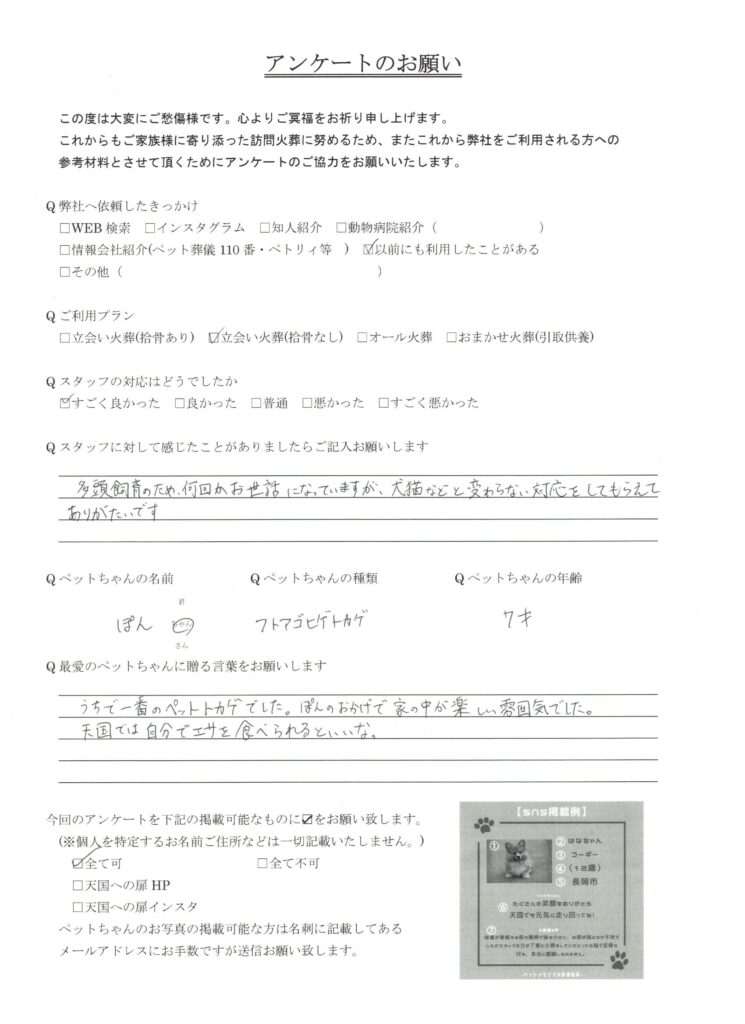 アンケートのお願い
この度は大変にご愁傷様です。心よりご冥福をお祈り申し上げます。
これからもご家族様に寄り添った訪問火葬に努めるため、またこれから弊社をご利用される方への
参考材料とさせて頂くためにアンケートのご協力をお願いいたします。
Q 弊社へ依頼したきっかけ
□WEB 検索 □インスタグラム □知人紹介 □動物病院紹介（ ）
□情報会社紹介(ペット葬儀 110 番・ペトリィ等 ) ☑以前にも利用したことがある
□その他（ ）
Q ご利用プラン
□立会い火葬(拾骨あり) ☑立会い火葬(拾骨なし) □オール火葬 □おまかせ火葬(引取供養)
Q スタッフの対応はどうでしたか
☑すごく良かった □良かった □普通 □悪かった □すごく悪かった
Q スタッフに対して感じたことがありましたらご記入お願いします
多頭飼育のため、何回かお世話になっていますが、犬猫などと変わらない対応をしてもらえて
ありがたいです
Q ペットちゃんの名前 Q ペットちゃんの種類 Q ペットちゃんの年齢
君
ぽん ちゃん フトアゴヒゲトカゲ 7才
さん
Q 最愛のペットちゃんに贈る言葉をお願いします
うちで一番のペットトカゲでした。ぽんのおかげで家の中が楽しい雰囲気でした。
天国では自分でエサを食べられるといいな。
今回のアンケートを下記の掲載可能なものに☑をお願い致します。
(※個人を特定するお名前ご住所などは一切記載いたしません。)
☑全て可 □全て不可
□天国への扉 HP
□天国への扉インスタ
ペットちゃんのお写真の掲載可能な方は名刺に記載してある
メールアドレスにお手数ですが送信お願い致します。
【sns掲載例】
① ② はなちゃん
③ コーギー
④ (12歳)
⑤ 長岡市
⑥ たくさんの笑顔をありがとう
天国でも元気に走り回ってね!
⑦